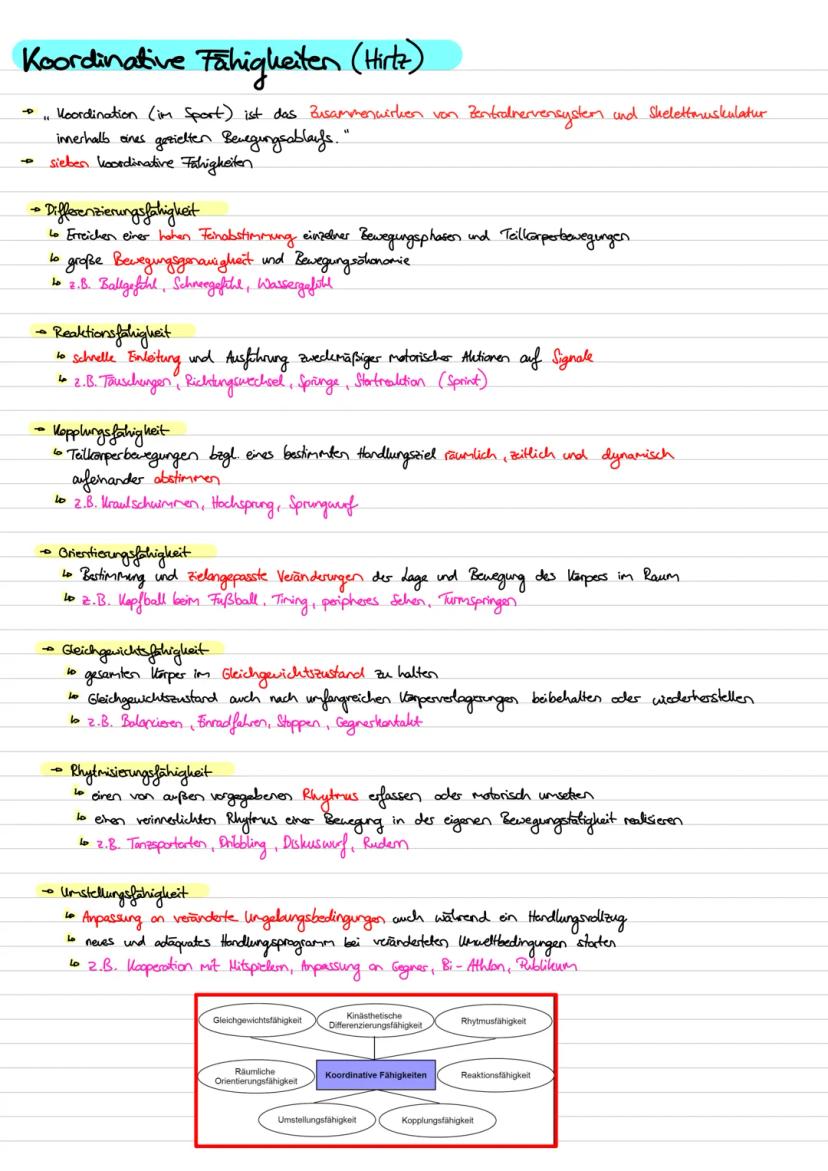 Koordinative Fähigkeiten (Hirtz)
→ „ Koordination (im Sport) ist das Zusammenwirken von Zentralnervensystem und Skelettmuskulatur
innerhalb eines gezielten Bewegungsablaufs."
→ sieben koordinative Fähigkeiten
→ Differenzierungsfähigkeit
↳ Erreichen einer hohen Feinabstimmung einzelner Bewegungsphasen und Teilkörperbewegungen
↳ große Bewegungsgenauigkeit und Bewegungsökonomie
↳ z.B. Ballgefühl, Schneegefühl, Wassergefühl
→ Reaktionsfähigkeit
↳ schnelle Einleitung und Ausführung zweckmäßiger motorischer Aktionen auf Signale
↳ z.B. Täuschungen, Richtungswechsel, Sprünge, Startreaktion (Sprint)
→ Kopplungsfähigkeit
↳ Teilkörperbewegungen bzgl. eines bestimmten Handlungsziel räumlich, zeitlich und dynamisch
aufeinander abstimmen
↳ z.B. Kraulschwimmen, Hochsprung, Sprungwurf
→ Orientierungsfähigkeit
↳ Bestimmung und zielangepasste Veränderungen der Lage und Bewegung des Körpers im Raum
↳ z.B. Kopfball beim Fußball, Timing, peripheres Sehen, Turmspringen
→ Gleichgewichtsfähigkeit
↳ gesamten Körper im Gleichgewichtszustand zu halten
↳ Gleichgewichtszustand auch nach umfangreichen Körperverlagerungen beibehalten oder wiederherstellen
↳ z.B. Balancieren, Einradfahren, Stoppen, Gegnerkontakt
→ Rhytmisierungsfähigkeit
↳ einen von außen vorgegebenen Rhytmus erfassen oder motorisch umsetzen
↳ einen verinnerlichten Rhytmus einer Bewegung in der eigenen Bewegungstätigkeit realisieren
↳ z.B. Tanzsportarten, Dribbling, Diskuswurf, Rudern
→ Umstellungsfähigkeit
↳ Anpassung an veränderte Umgebungsbedingungen auch während ein Handlungsvollzug
↳ neues und adäquates Handlungsprogramm bei veränderteten Umweltbedingungen starten
↳ z.B. Kooperation mit Mitspielern, Anpassung an Gegner, Bi-Athlon, Publikum
Gleichgewichtsfähigkeit
Kinästhetische
Differenzierungsfähigkeit
Rhytmusfähigkeit
Räumliche
Orientierungsfähigkeit
Koordinative Fähigkeiten
Reaktionsfähigkeit
Umstellungsfähigkeit
Kopplungsfähigkeit